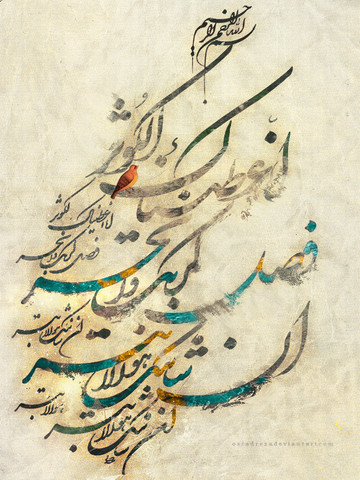 بسم الله الرحمن الرحیم
انا اعطیناک الکوثر
انا اعطیناک الکوثر
فصل لربک وانحر
فصل لربک وانحر
ان شانئک هو الابتر
ان شانئک هو الابتر
ان شانئک هو الابتر
هو الابتر